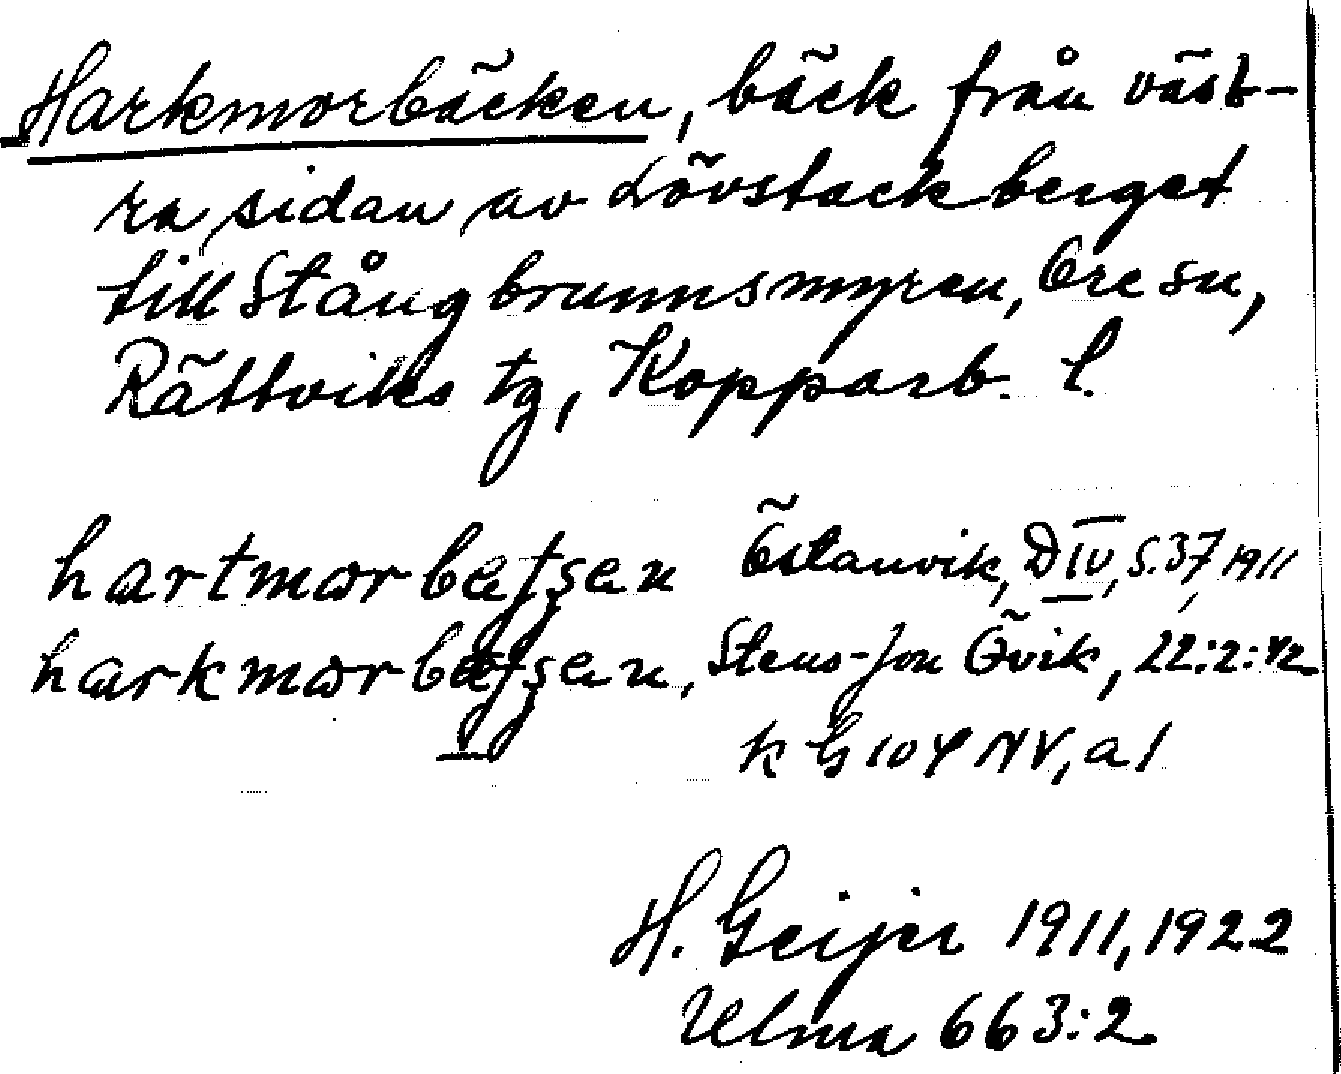 Harkmorbäcken, bäck från väst-
ra sidan av Lövstackberget
till Stångbrunnsmyren, Ore sn,
Rättviks tg, Kopparb. l.
hartmor Östanvik, D IV, S. 37, 1911
harkmor Stens-Jon Övik, 22:2:42
k G 104 NV, a 1
H. Geijer 1911, 1922
Ulma 663:2